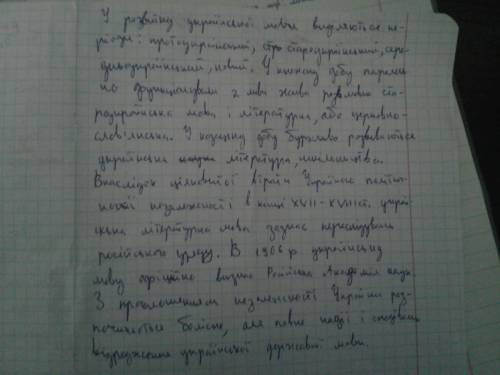 У розвитку української мови виділяються пе-
ріоди: протоукраїнський, староукраїнський, сере-
дньоукраїнський, новий. У княжу добу паралель-
но функціонували 2 мови жива розмовна ста-
роукраїнська мова і літературна, або церковно-
слов'янська. У козацьку добу бурхливо розвивається
українська література, шкільництво.
Внаслідок цілковитої втрати Україною політич-
ної незалежності в кінці XVII-XVIII ст. украї-
нська літературна мова зазнає переслідувань
російського уряду. В 1906 р. українську
мову офіційно визнає Російська Академія наук.
З проголошенням незалежності України роз-
починається болісне, але повне надії і сподівань
відродження української державної мови.